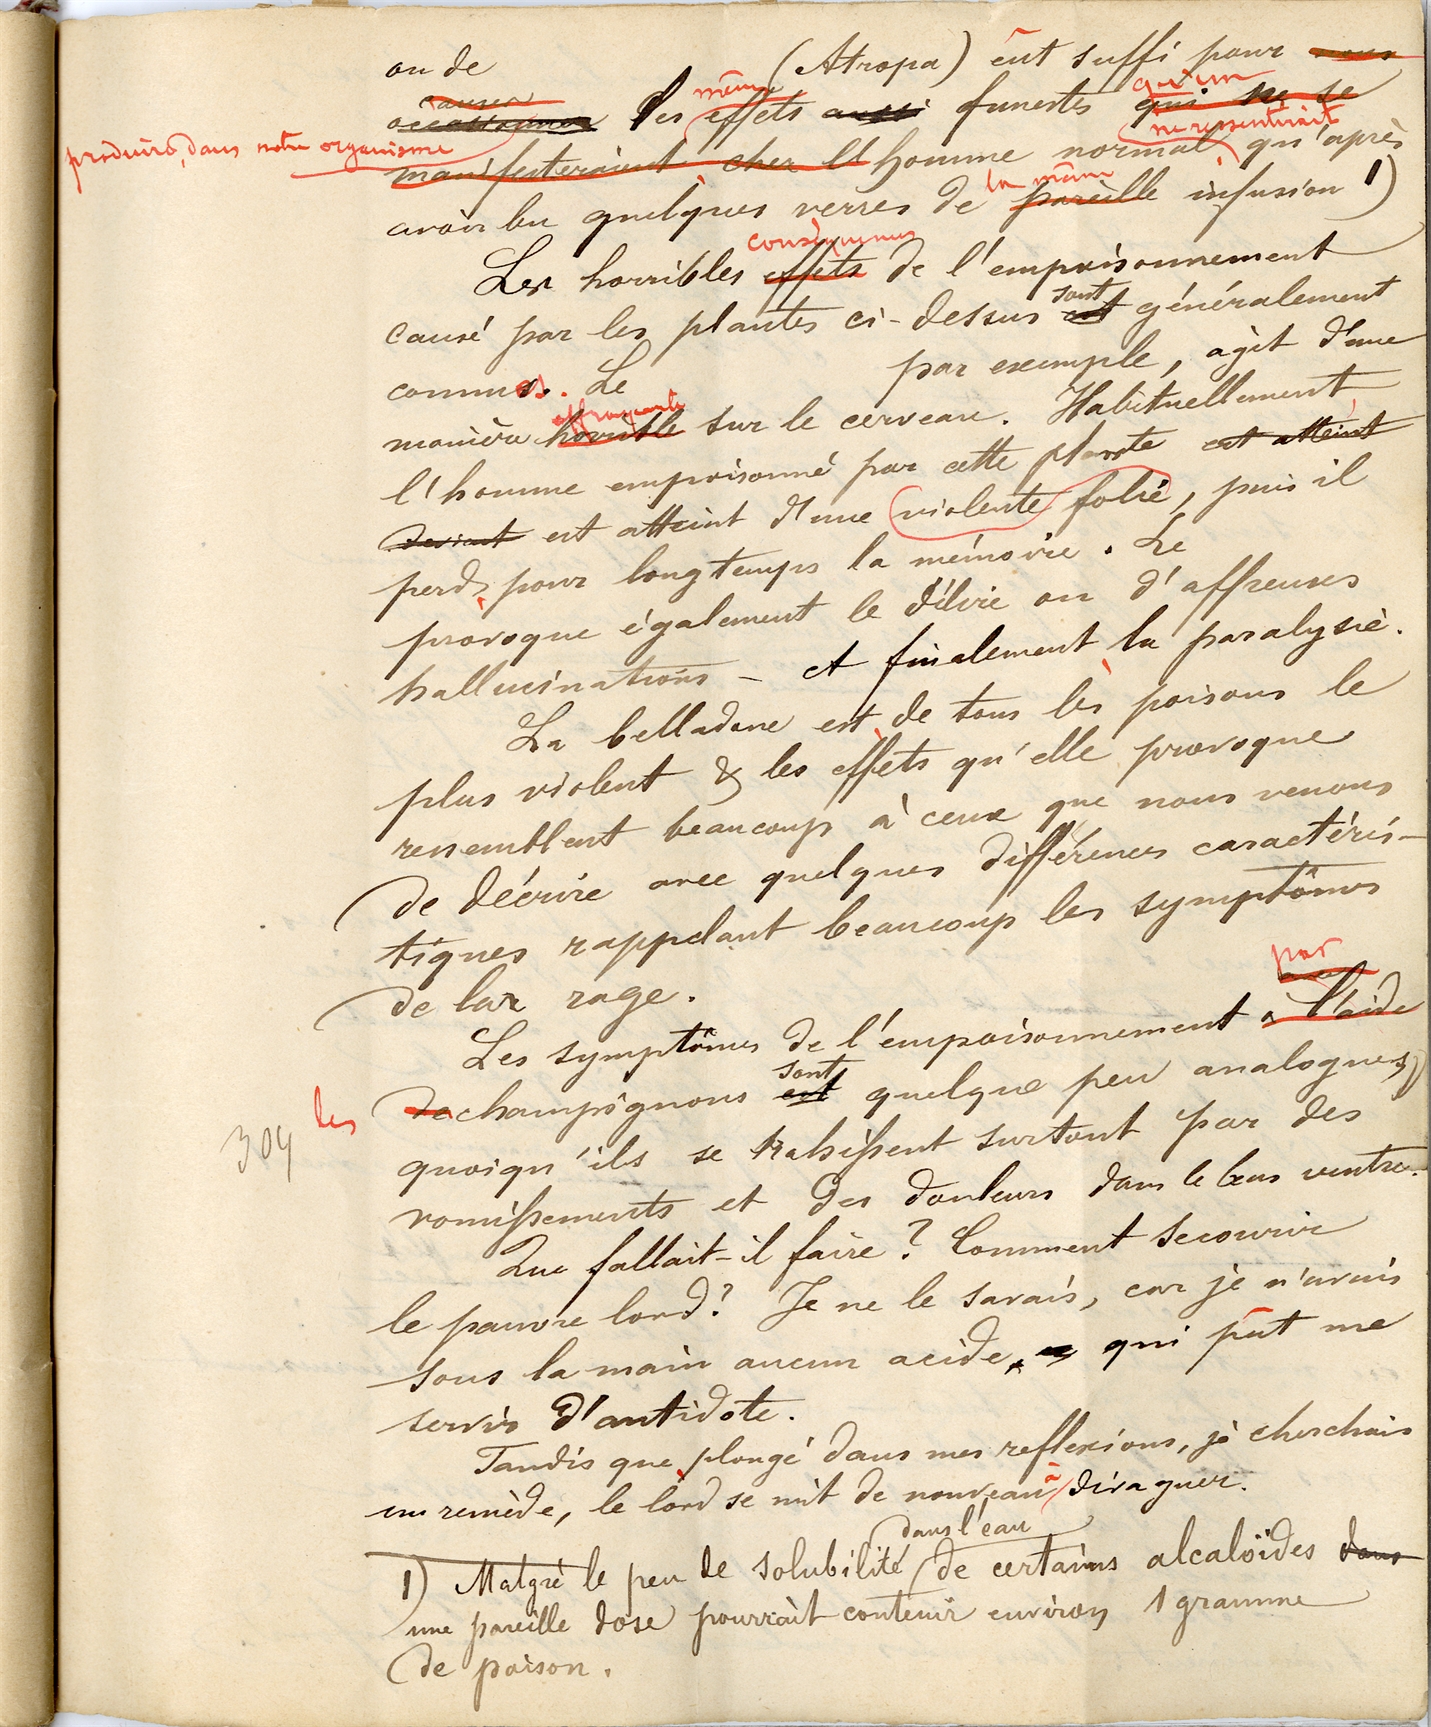 ou de (Atropa) eût suffi pour nous
causer
occasionner les même effets aussi funestes qui ne se qu'un
produire, dans notre organisme
manifesteraient chez l'homme normal ne ressentirait qu'après
avoir bu quelques verres de pareille la même infusion 1)
Les horribles effets conséquences de l'emprisonnement
causé par les plantes ci-dessus est sont généralement
connues. Le par exemple, agit d'une
manière horrible effrayante sur le cerveau. Habituellement,
l'homme emprisonné par cette plante est atteint
devient est atteint d'une violente folie, puis il
perd, pour longtemps la mémoire. Le
provoque également le délire ou d'affreuses
hallucinations – et finalement la paralysie.
La belladone est, de tous les poisons le
plus violent & les effets qu'elle provoque
ressemblent beaucoup à ceux que nous venons
de décrire avec quelques différences caractéris-
tiques rappelant beaucoup les symptômes
de la rage.
par
Les symptômes de l'empoisonnement à l'aide
les de champignons est sont quelque peu analogues,
304
quoiqu'ils se trahissent surtout par des
vomissements et des douleurs dans le bas ventre.
Que fallait-il faire? Comment secourir
le pauvre lord? Je ne le savais, car je n'avais
sous la main aucun acide, qui pût me
servir d'antidote.
Tandis que, plongé dans mes reflexions, je cherchais
un remède, le lord se mit de nouveau à divaguer.
dans l'eau
1) Malgré le peu de solubilité de certains alcaloïdes dans
une pareille dose pourrait contenir environ 1 gramme
de poison.